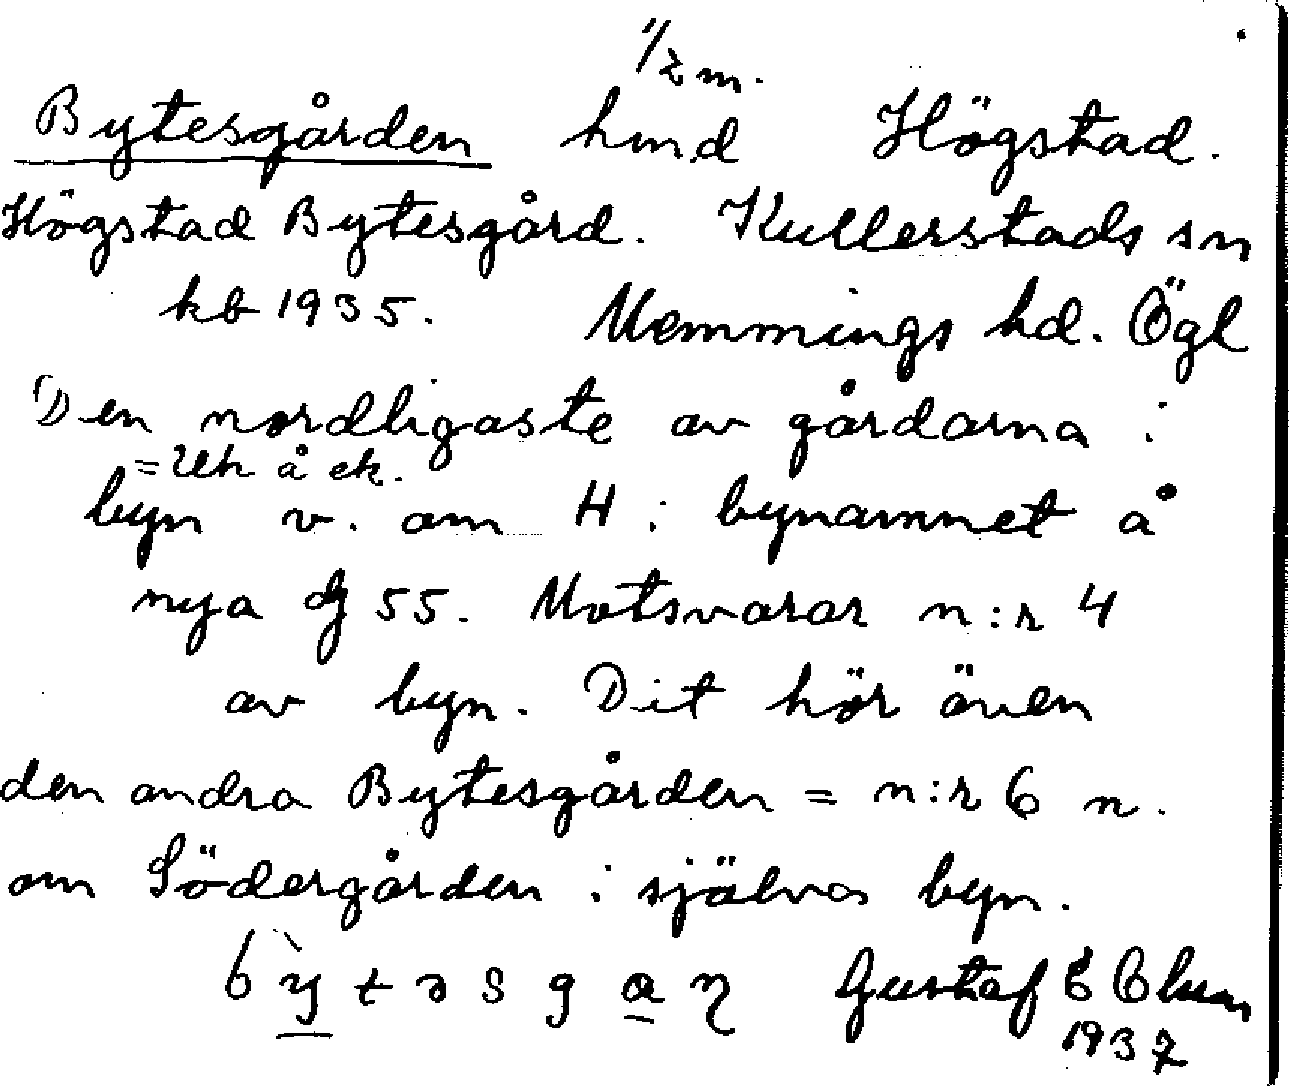 1/2 m.
Bytesgården hmd Högstad.
Högstad Bytesgård. Kullerstads sn
kb 1935. Memmings hd. Ögl
Den nordligaste av gårdarna i
= Uh å ek.
byn v. om H i bynamnet å
nya 55. Motsvarar n:r 4
av byn. Dit hör även
den andra Bytesgården = n:r 6 n.
om Södergården i själva byn.
Gustaf
1937